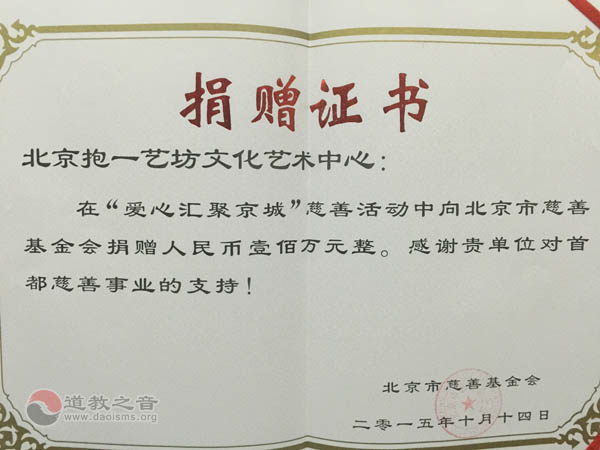 捐赠证书
北京抱一艺坊文化艺术中心：
在“爱心汇聚京城”慈善活动中向北京市慈善
基金会捐赠人民币壹佰万元整。感谢贵单位对首
都慈善事业的支持！
北京市慈善基金会
二〇一五年十月十四日
道教之音
www.daoisms.org